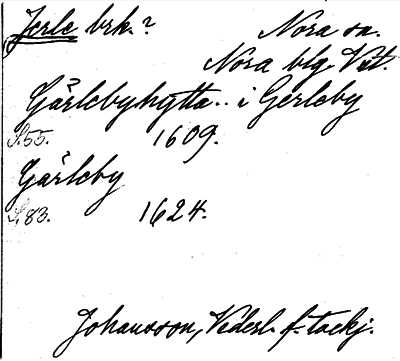 Jerle brk.? Nora sn.
Nora blg. Vstl.
Gärlebyhytta.. i Gerleby
S.55. 1609.
Gärleby
S.83. 1624.
Johansson, Vedersl. f. tackj.